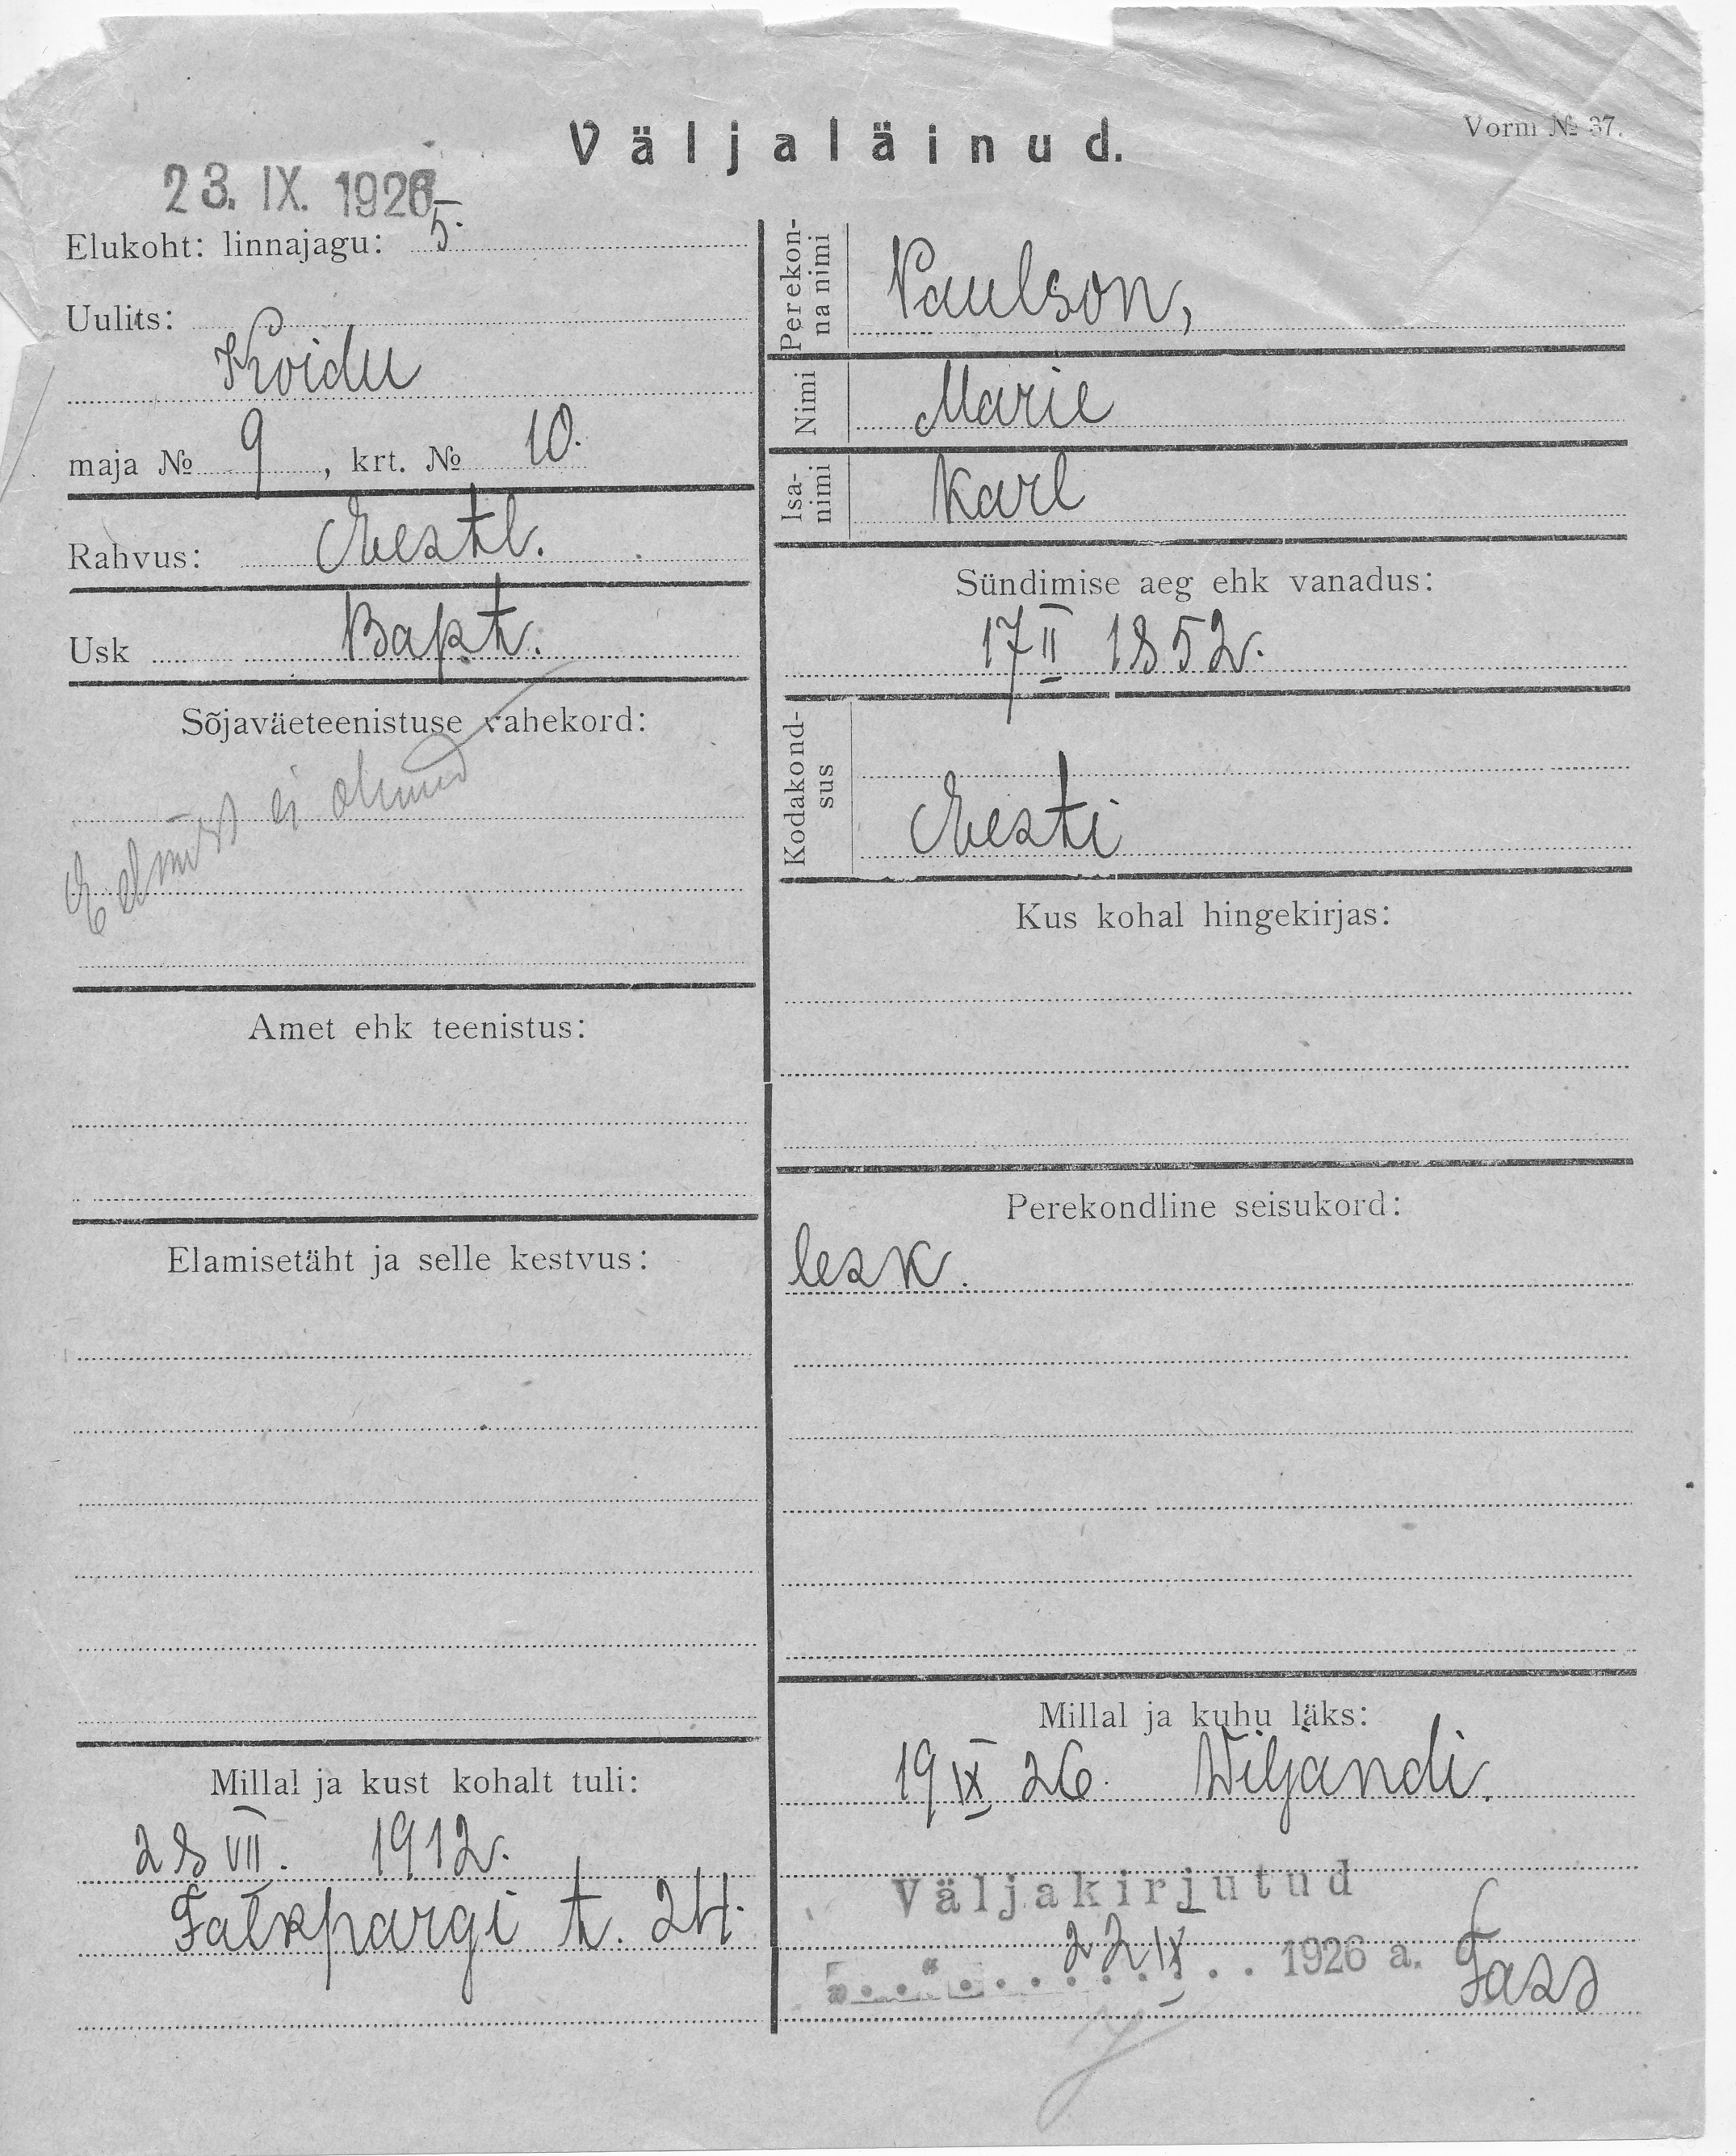 Väljaläinud.
Vorm № 37.
23. IX. 1926
Elukoht: linnajagu: 5.
Uulits:
Koidu
maja № 9, krt. № 10.
Rahvus: Eestl.
Usk Bapt.
Sõjaväeteenistuse vahekord:
ei olnud
Amet ehk teenistus:
Elamisetäht ja selle kestvus:
Millal ja kust kohalt tuli:
28 VII. 1912.
Falkpargi t. 24.
Perekon-
na nimi
Paulson,
Nimi
Marie
Isa-
nimi
Karl
Sündimise aeg ehk vanadus:
17 II 1852.
Kodakond-
sus
Eesti
Kus kohal hingekirjas:
Perekondline seisukord:
lesk.
Millal ja kuhu läks:
19 IX 26. Wiljandi.
Väljakirjutud
22 IX 1926 a.